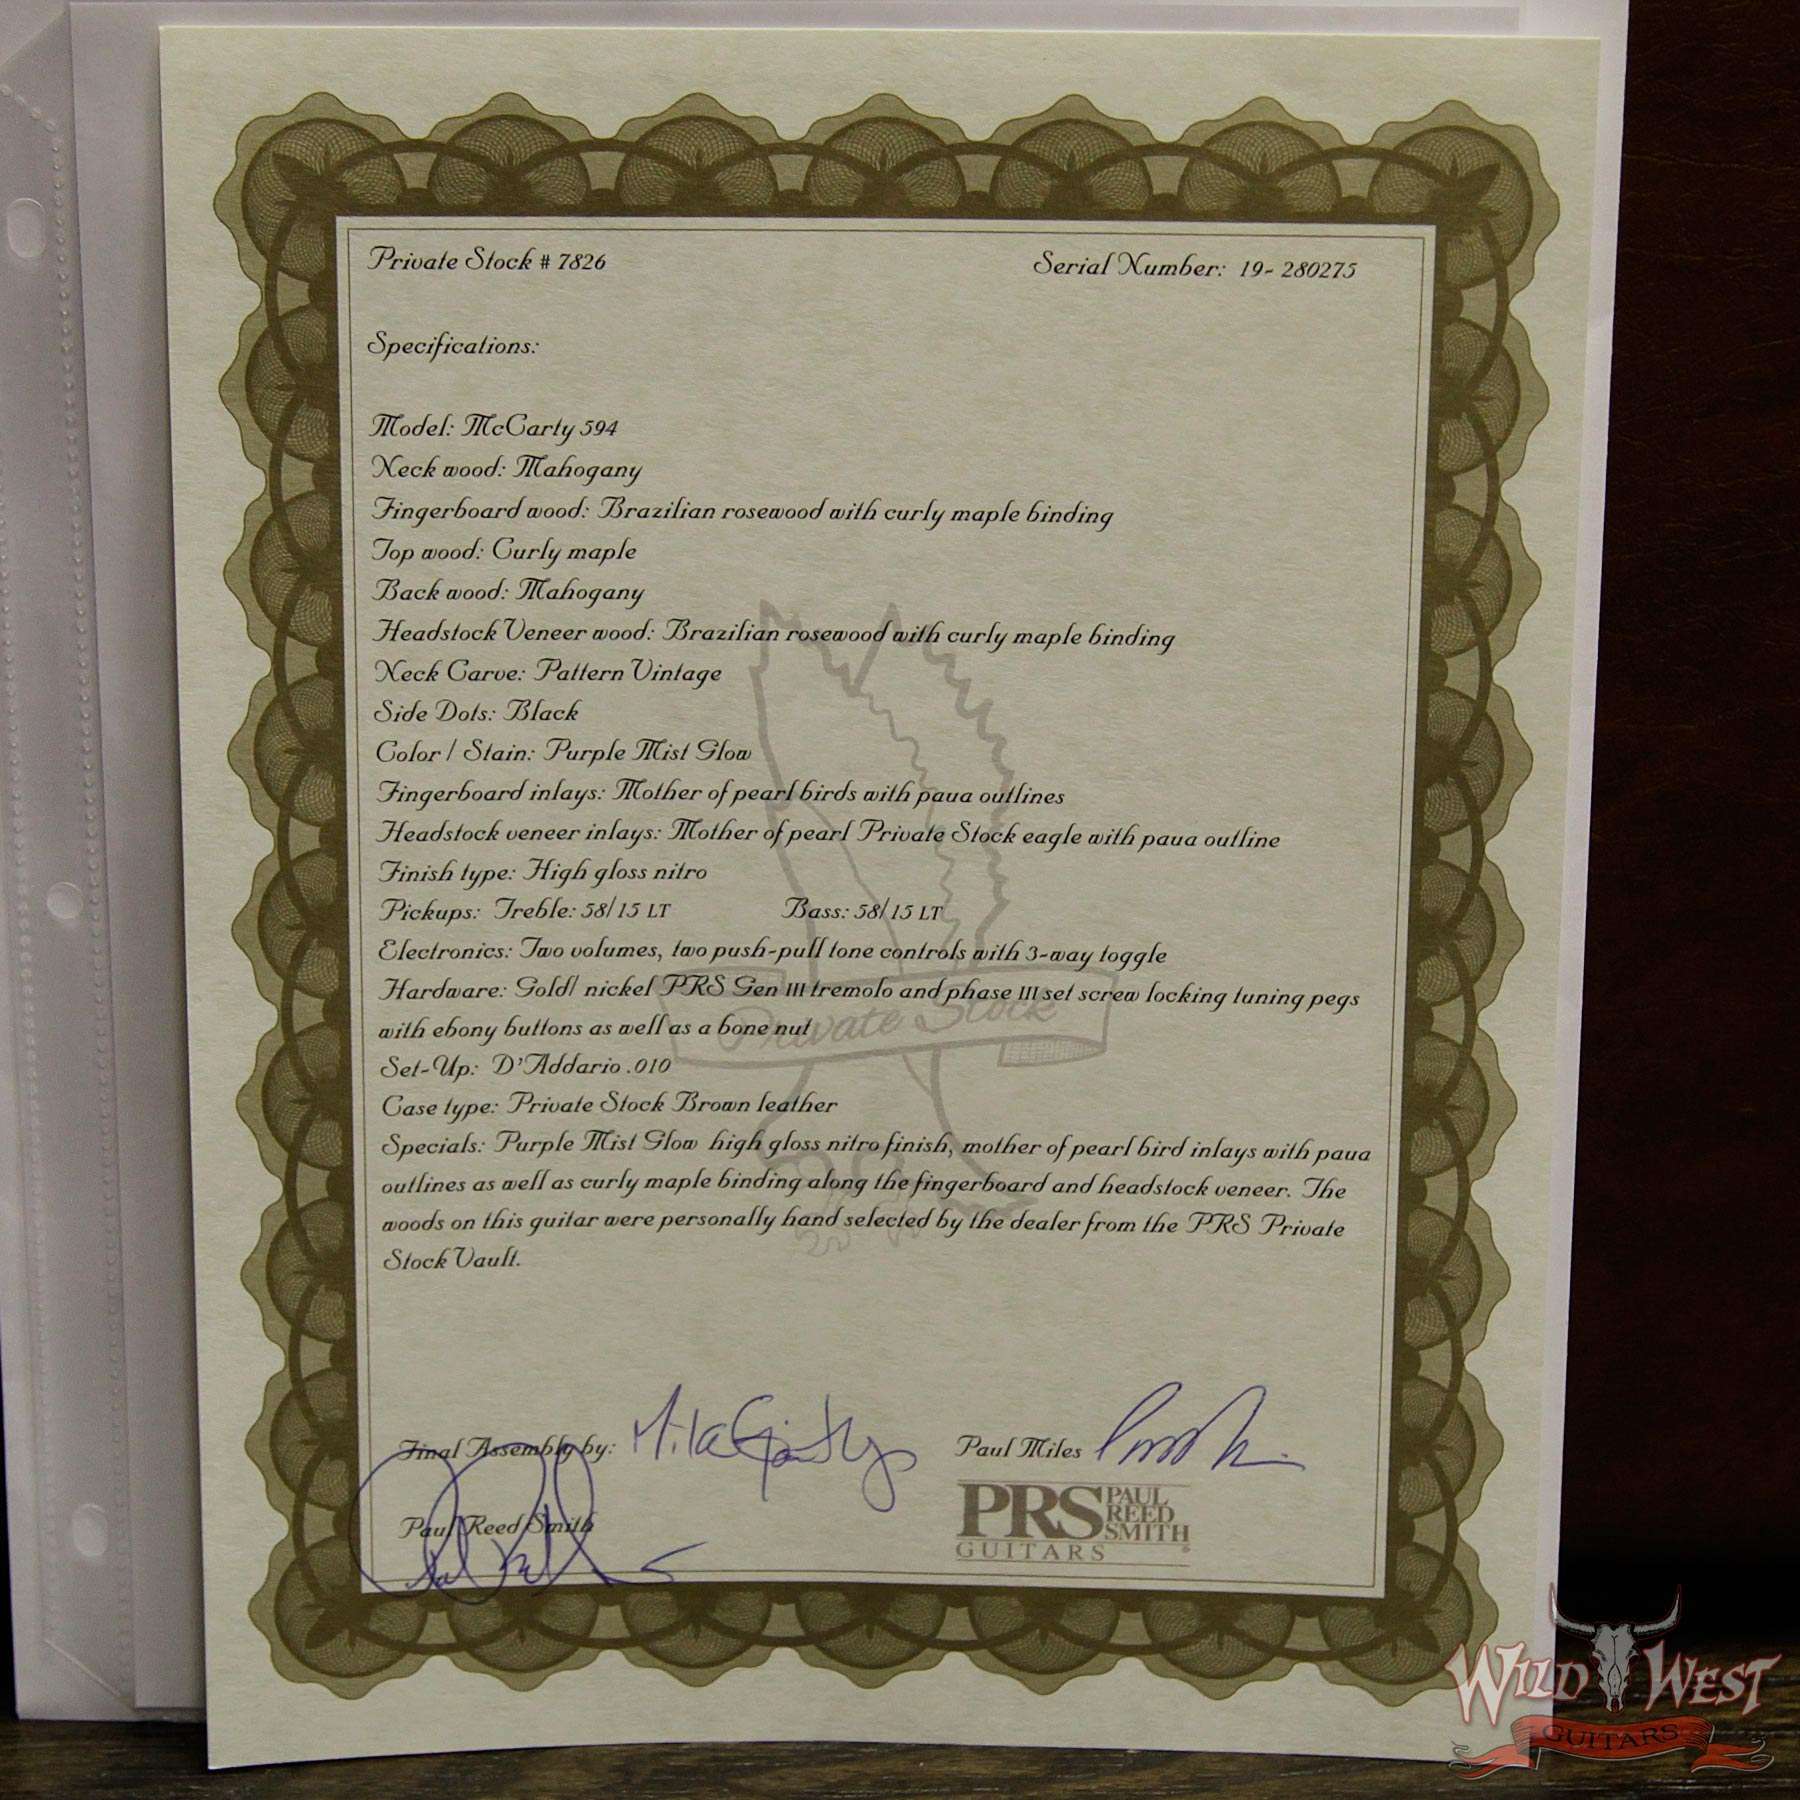 Private Stock # 7826 Serial Number: 19- 280275
Specifications:
Model: McCarty 594
Neck wood: Mahogany
Fingerboard wood: Brazilian rosewood with curly maple binding
Top wood: Curly maple
Back wood: Mahogany
Headstock Veneer wood: Brazilian rosewood with curly maple binding
Neck Carve: Pattern Vintage
Side Dots: Black
Color / Stain: Purple Mist Glow
Fingerboard inlays: Mother of pearl birds with paua outlines
Headstock veneer inlays: Mother of pearl Private Stock eagle with paua outline
Finish type: High gloss nitro
Pickups: Treble: 58/15 LT Bass: 58/15 LT
Electronics: Two volumes, two push-pull tone controls with 3-way toggle
Hardware: Gold/ nickel PRS Gen III tremolo and phase III set screw locking tuning pegs
with ebony buttons as well as a bone nut
Private Stock
Set-Up: D'Addario .010
Case type: Private Stock Brown leather
Specials: Purple Mist Glow high gloss nitro finish, mother of pearl bird inlays with paua
outlines as well as curly maple binding along the fingerboard and headstock veneer. The
woods on this guitar were personally hand selected by the dealer from the PRS Private
Stock Vault.
Final Assembly by:
Paul Miles
Paul Reed Smith
PRS PAUL
REED
SMITH
GUITARS
WILD WEST
GUITARS